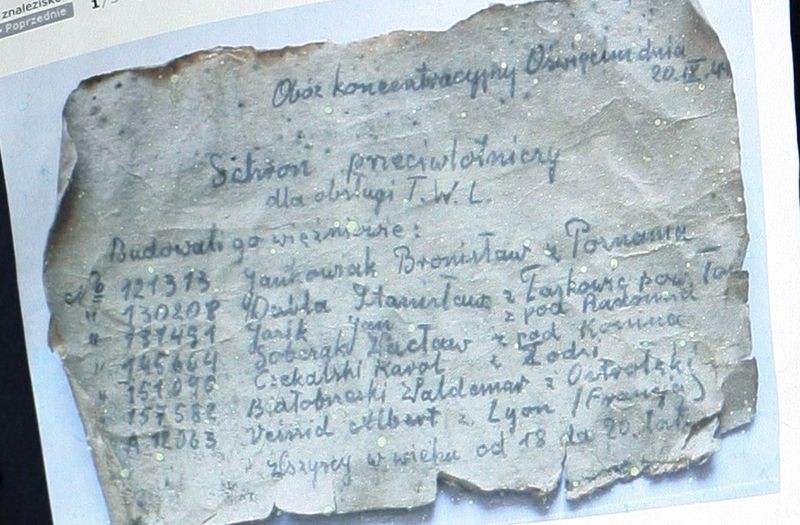 znalezisko
Poprzednie
1/
Obóz koncentracyjny Oświęcim dnia
20.IX.4
Schron przeciwlotniczy
dla obsługi T.W.L.
Budowali go więźniowie:
No 121313 Jankowiak Bronisław z Poznania
" 130208 Dubla Stanisław z Łaskowic pow.
" 131491 Jasik Jan z pod Radomia
" 145664 Sobczak Wacław z pod Konina
" 151090 Czekalski Karol z Łodzi
" 157582 Białobrzeski Waldemar z Ostrołęki
A 12063 Veissid Albert z Lyon (Francja)
Wszyscy w wieku od 18 do 20 lat